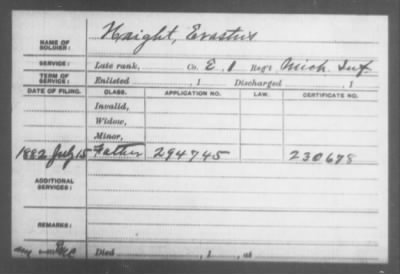 NAME OF SOLDIER: Haight, Erastus
SERVICE: Late rank, Co. E. 1 Reg't Mich. Inf.
TERM OF SERVICE: Enlisted , 1 Discharged , 1
DATE OF FILING. CLASS. APPLICATION NO. LAW. CERTIFICATE NO.
Invalid,
Widow,
Minor,
1882 July 15 Father 294745 230678
ADDITIONAL SERVICES:
REMARKS:
Died , 1 , at